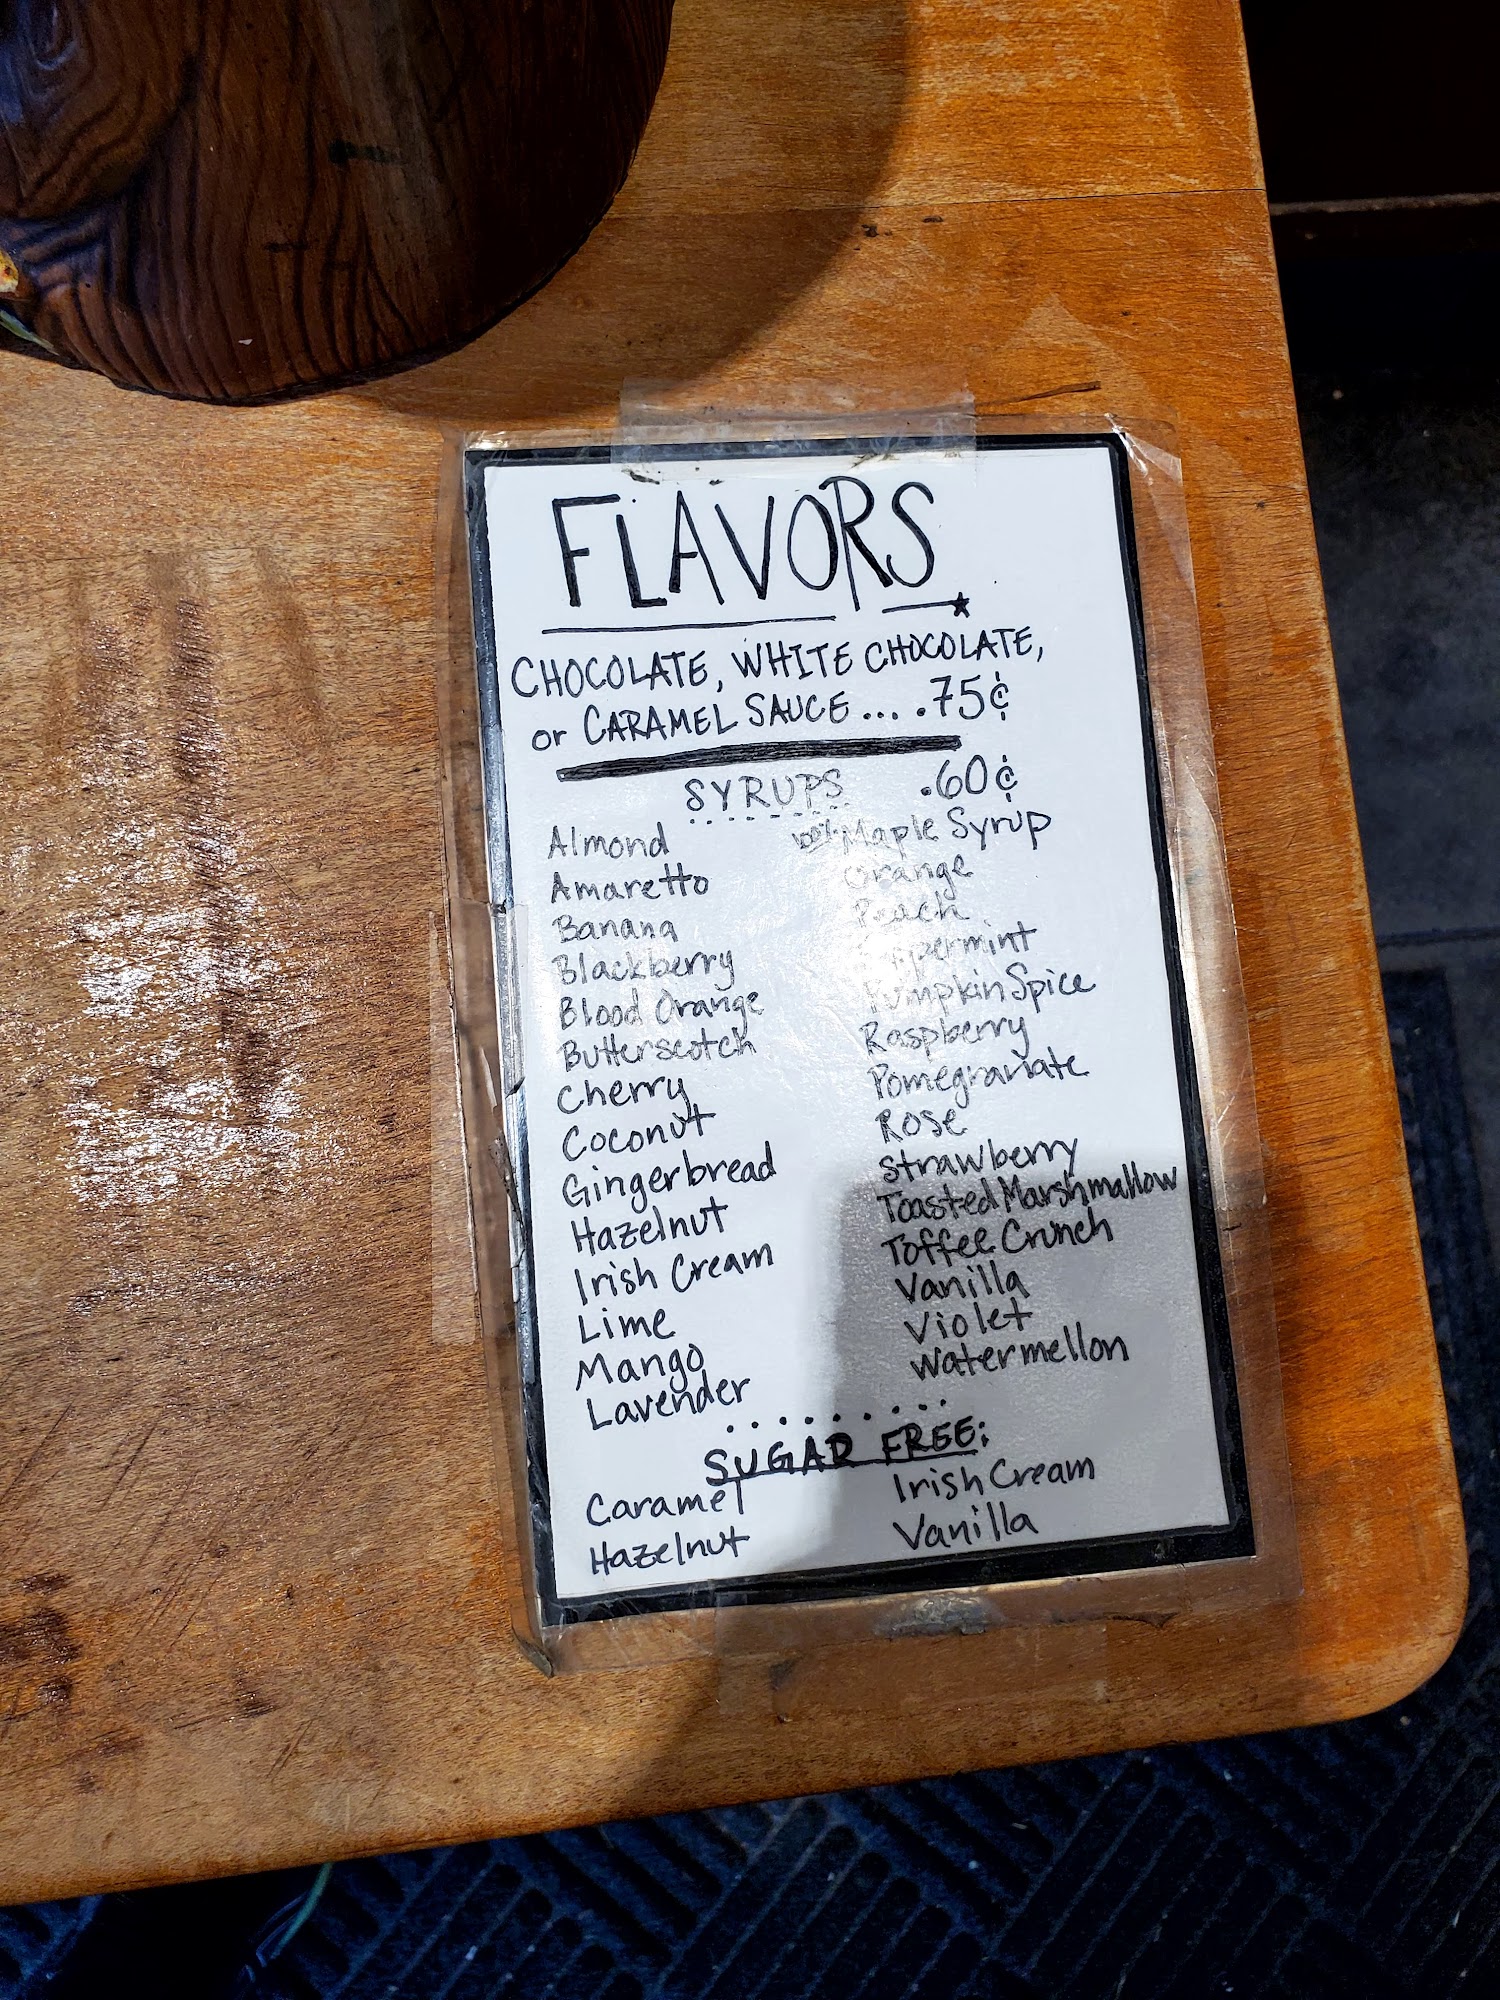 FLAVORS
CHOCOLATE, WHITE CHOCOLATE,
or CARAMEL SAUCE ... .75¢
SYRUPS .60¢
Almond
Amaretto
Banana
Blackberry
Blood Orange
Butterscotch
Cherry
Coconut
Gingerbread
Hazelnut
Irish Cream
Lime
Mango
Lavender
Maple Syrup
Orange
Peach
Peppermint
Pumpkin Spice
Raspberry
Pomegranate
Rose
Strawberry
Toasted Marshmallow
Toffee Crunch
Vanilla
Violet
Watermellon
SUGAR FREE:
Caramel
Hazelnut
Irish Cream
Vanilla